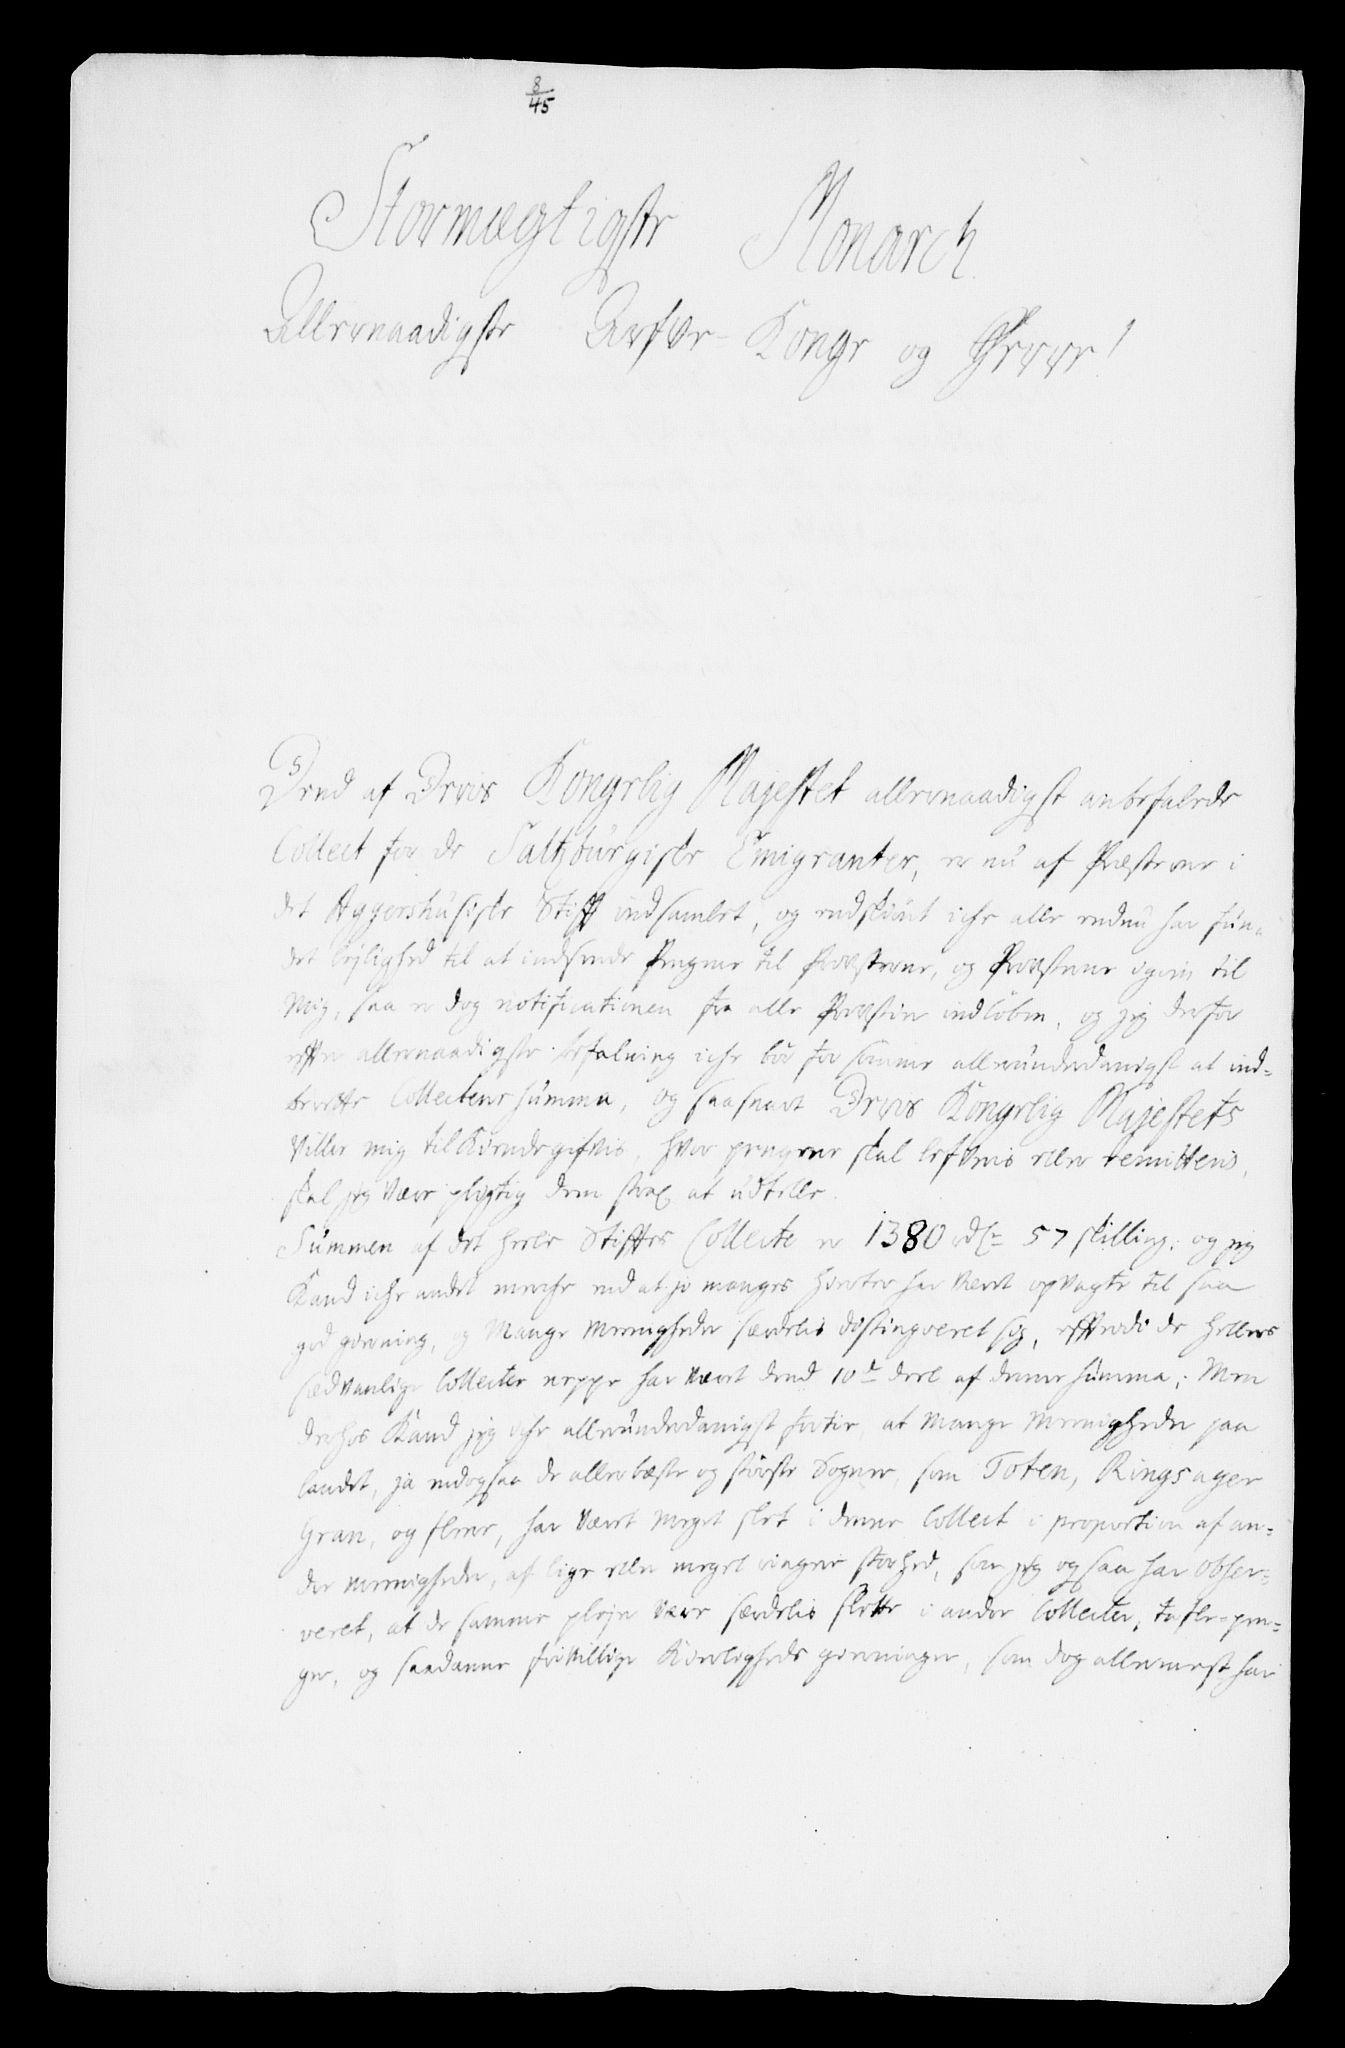 8/45
Stormægtigste Monarch
Allernaadigste Arfve-Konge og Herre!
Dend af Deres Kongelig Majestet allernaadigst anbefalede
Collect for de Saltzburgiske Emigranter, er nu af Præsterne i
det Aggershusiske Stift indsamlet, og endskiönt iche alle endnu har fun-
det leylighed til at indsende Pengene til Provsterne, og Provsterne igien til
Mig, saa er dog notificationen fra alle Provstier indløben, og jeg derfor
effter allernaadigste befalning iche bør for somme allerunderdanigst at ind-
berette Collectens summa, og saasnart Deres Kongelig Majestets
Villie mig tilKiendegifves, hvor pengene skal lefveres eller remitteris,
skal jeg være pligtig dem strax at udtelle.
Summen af det heele Stifftes Collecte er 1380 rdlr 57 skilling; og jeg
Kand iche andet merche end at jo manges hierter har veret opvagte til saa
god gierning, og Mange Meenigheder særdelis distingveret sig, efftersom de Hellers
sædvanlige Collecter neppe har veret dend 10de deel af denne summa; Men
derhos Kand jeg iche allerunderdanigst fortie, at Mange Meenigheder paa
landet, ja endogsaa de allerbæste og største Sogne, som Toten, Ringsager
Gran, og fleere, har veret meget slet i denne Collect i proportion af an-
dre meenigheder, af lige eller meget ringere storhed, som jeg og saa har obser-
veret, at de samme pleje være særdelis slette i andre Collecter, tafle-pen-
ge, og saadanne frivillige Kierligheds gierninger, som dog allermest har